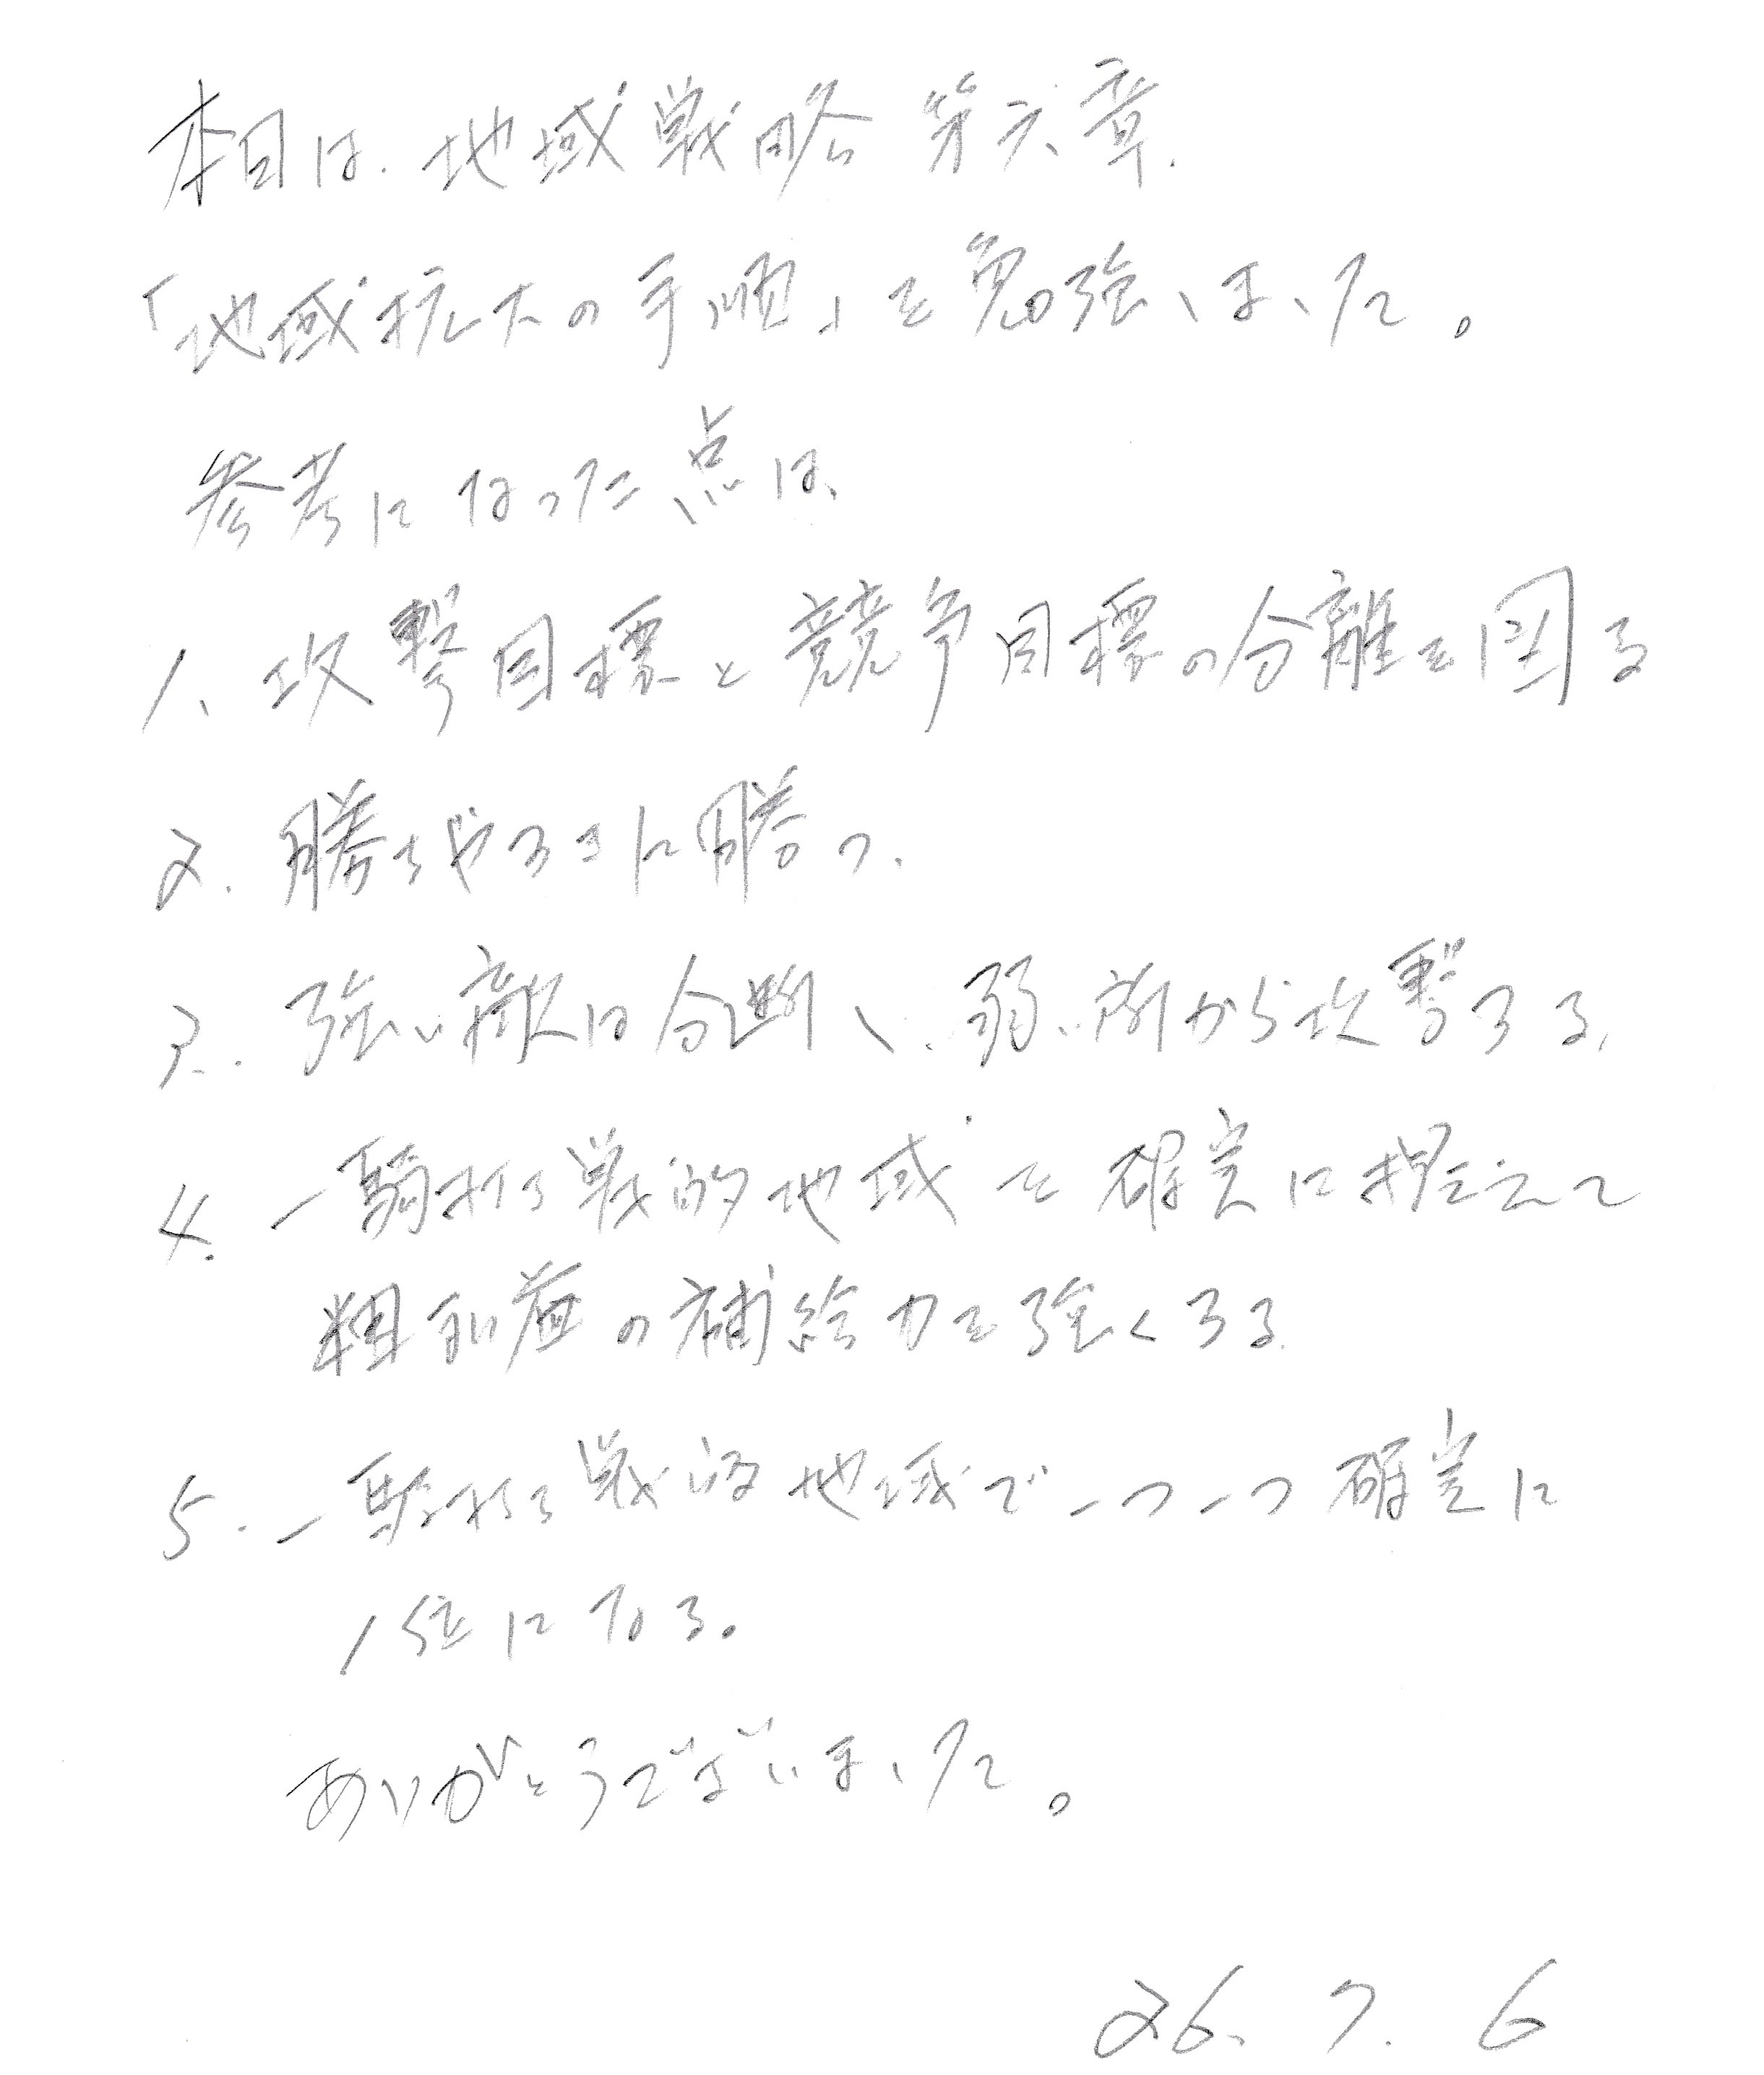 本日は、地域戦略 第六章、
「地域拡大の手順」を勉強しました。
参考になった点は、
1、攻撃目標と競争目標の分離を図る
2、勝ちやすきに勝つ、
3、強い敵は分断し、弱い所から攻撃する、
4、一騎打ち戦的地域を確実に押さえて
粗利益の補給力を強くする、
5、一騎打ち戦的地域で一つ一つ確実に
1位になる。
ありがとうございました。
26、7、6